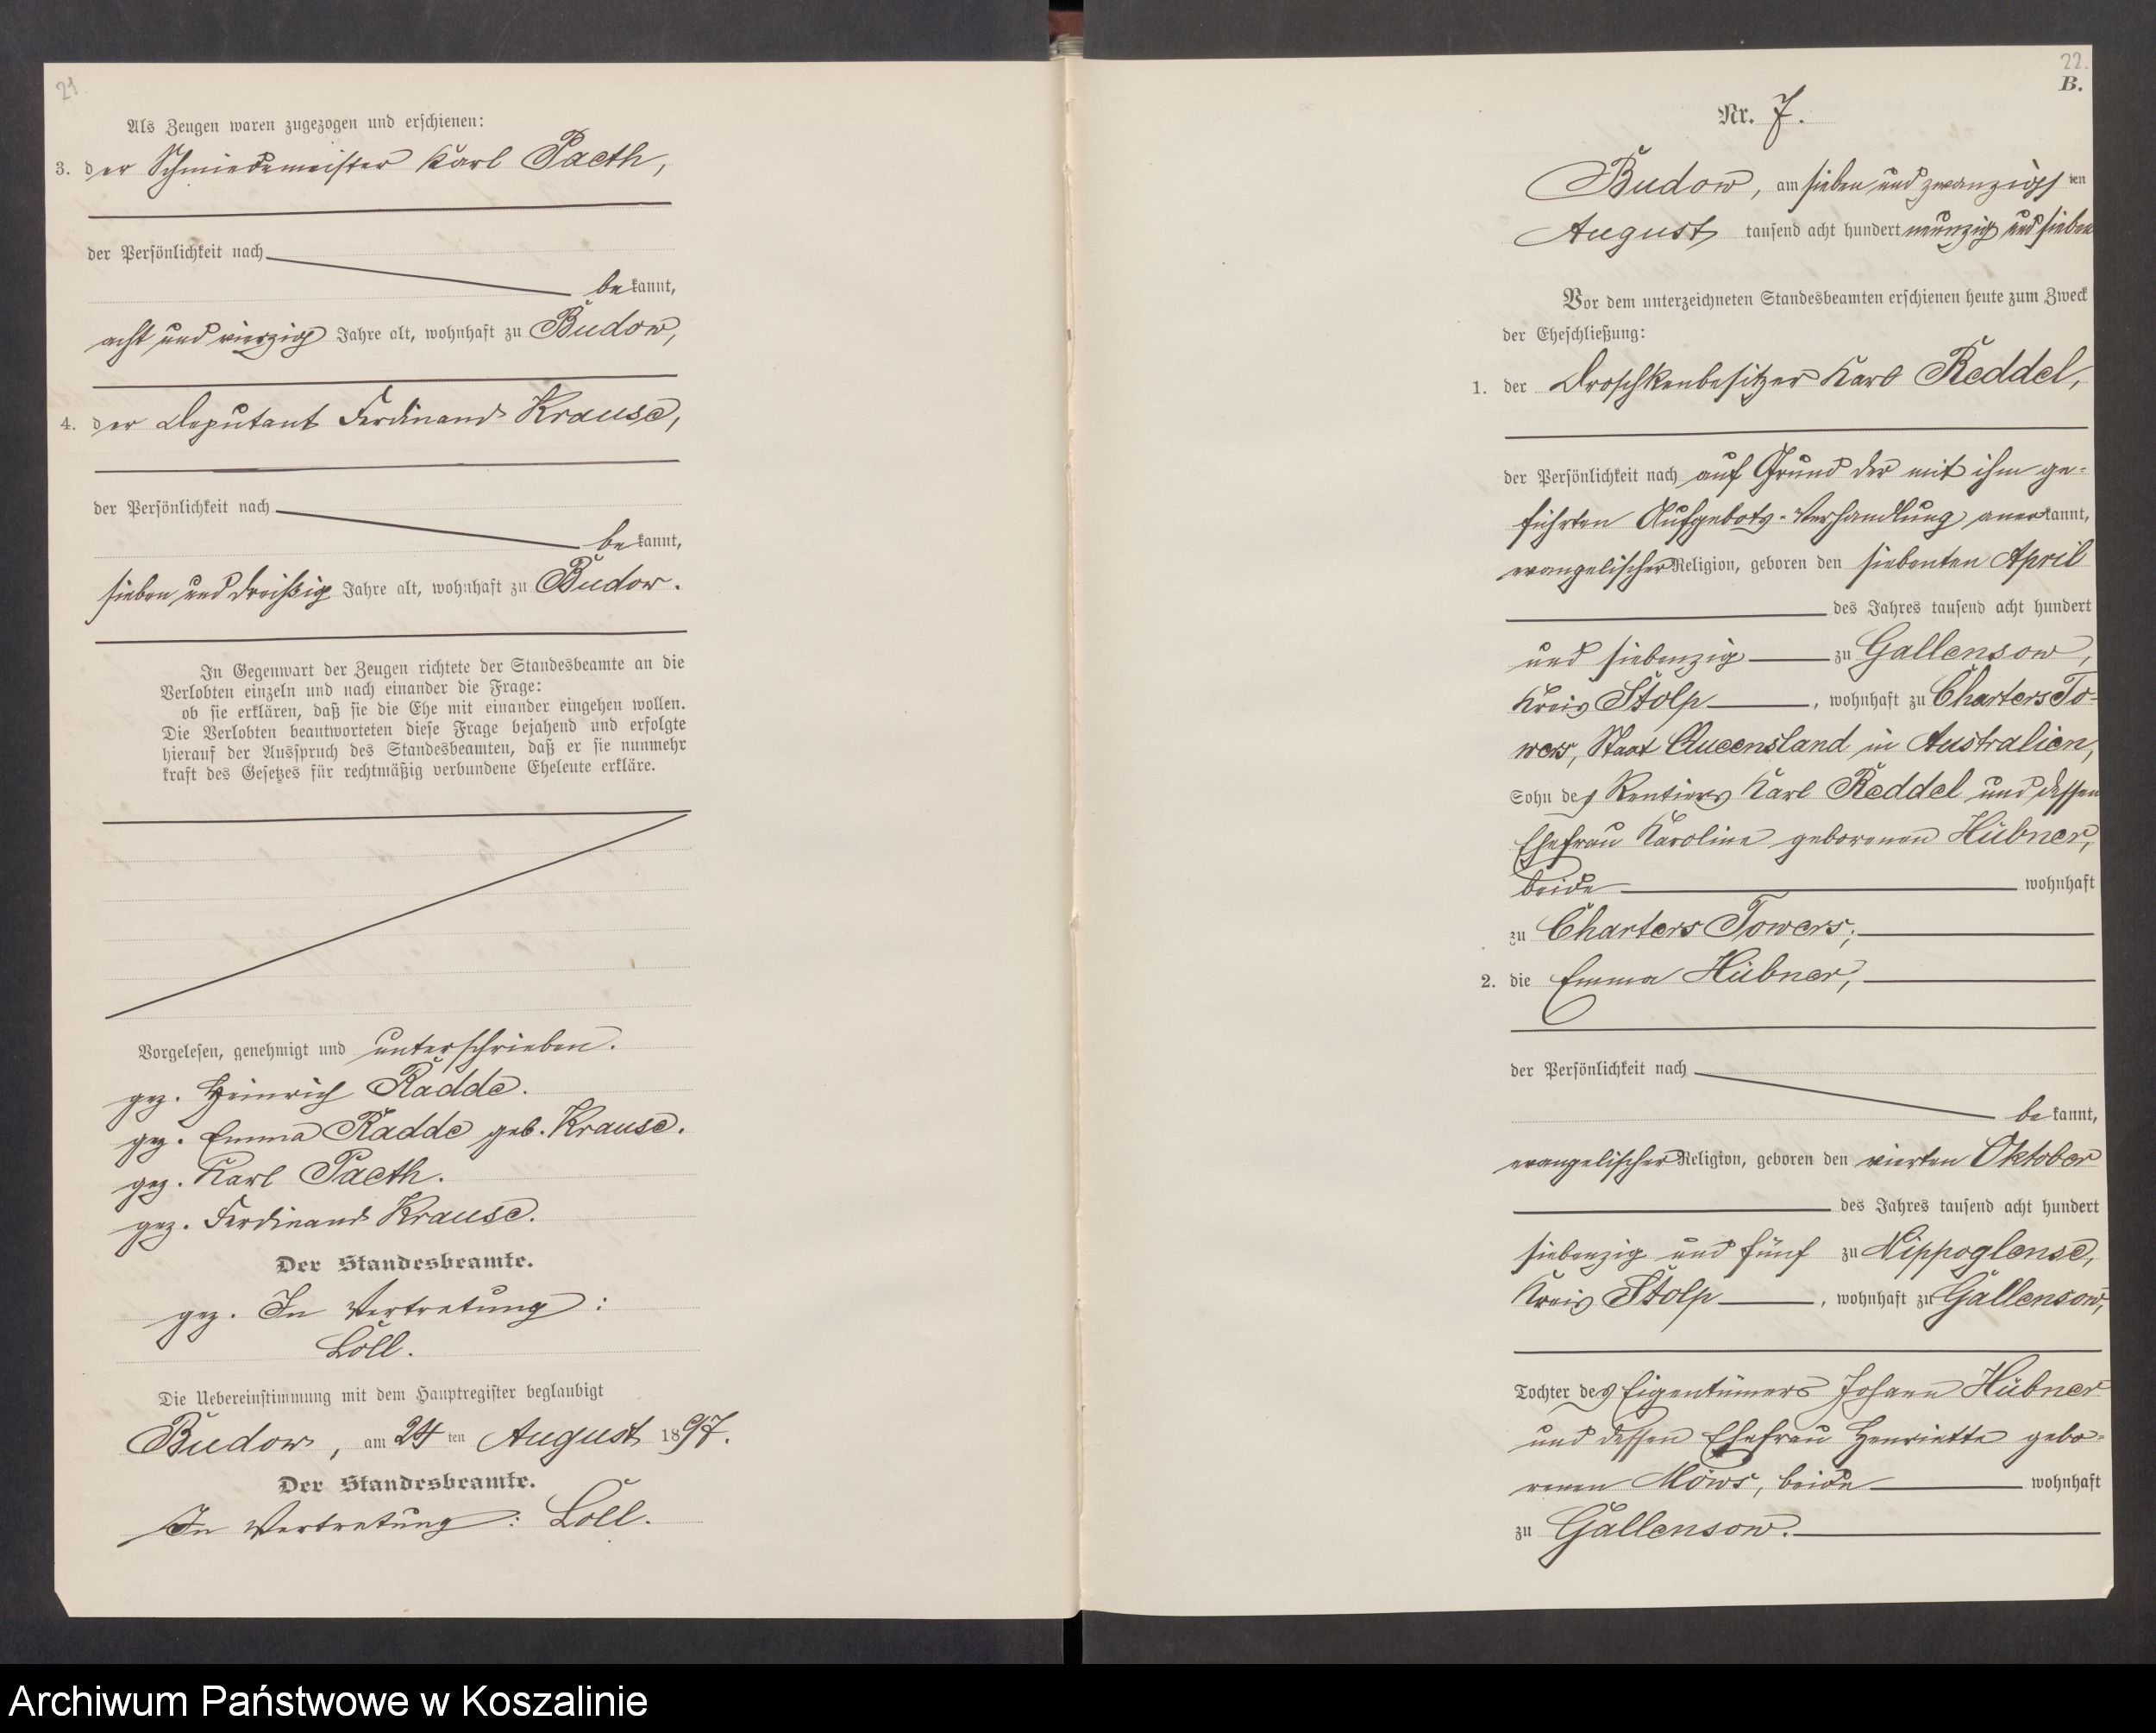 21.
Als Zeugen waren zugezogen und erschienen:
3. der Schmiedemeister Karl Paeth,
der Persönlichkeit nach
bekannt,
acht und vierzig Jahre alt, wohnhaft zu Budow,
4. der Deputant Ferdinand Krause,
der Persönlichkeit nach
bekannt,
sieben und dreißig Jahre alt, wohnhaft zu Budow.
In Gegenwart der Zeugen richtete der Standesbeamte an die
Verlobten einzeln und nach einander die Frage:
ob sie erklären, daß sie die Ehe mit einander eingehen wollen.
Die Verlobten beantworteten diese Frage bejahend und erfolgte
hierauf der Ausspruch des Standesbeamten, daß er sie nunmehr
kraft des Gesetzes für rechtmäßig verbundene Eheleute erkläre.
Vorgelesen, genehmigt und unterschrieben.
gez. Heinrich Radde.
gez. Emma Radde geb. Krause.
gez. Karl Paeth.
gez. Ferdinand Krause.
Der Standesbeamte.
gez. In Vertretung:
Löll.
Die Uebereinstimmung mit dem Hauptregister beglaubigt
Budow, am 24 ten August 1897.
Der Standesbeamte.
In Vertretung: Löll.
22.
B.
Nr. 7.
Budow, am sieben und zwanzigsten
August tausend acht hundert neunzig und sieben
Vor dem unterzeichneten Standesbeamten erschienen heute zum Zweck
der Eheschließung:
1. der Droschkenbesitzer Karl Reddel,
der Persönlichkeit nach auf Grund der mit ihm ge-
führten Aufgebots-Verhandlung anerkannt,
evangelischer Religion, geboren den siebenten April
des Jahres tausend acht hundert
und siebenzig zu Gallensow,
Kreis Stolp, wohnhaft zu Charters To-
wers, Staat Queensland in Australien,
Sohn des Rentiers Karl Reddel und dessen
Ehefrau Karoline geborenen Hübner,
beide wohnhaft
zu Charters Towers;
2. die Emma Hübner,
der Persönlichkeit nach
bekannt,
evangelischer Religion, geboren den vierten Oktober
des Jahres tausend acht hundert
siebenzig und fünf zu Nippoglense,
Kreis Stolp, wohnhaft zu Gallensow,
Tochter des Eigentümers Johann Hübner
und dessen Ehefrau Henriette gebo-
renen Möws, beide wohnhaft
zu Gallensow.
Archiwum Państwowe w Koszalinie